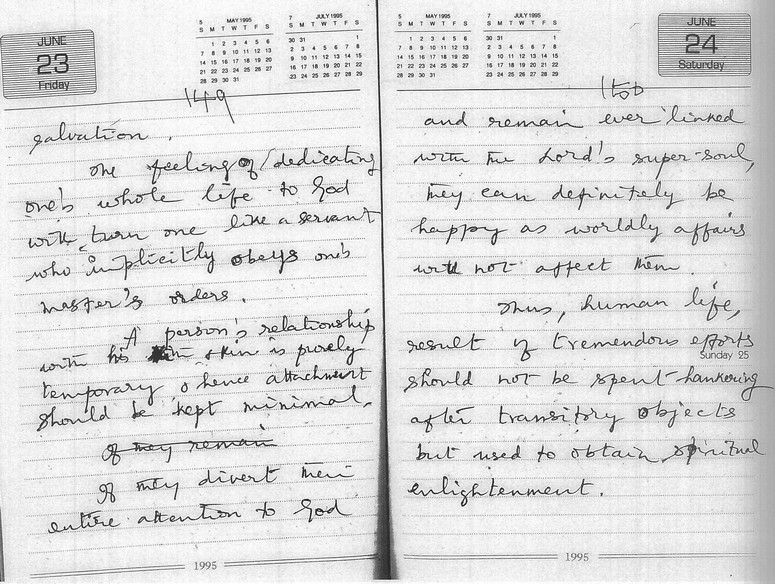 JUNE
23
Friday
5 MAY 1995
S M T W T F S
1 2 3 4 5 6
7 8 9 10 11 12 13
14 15 16 17 18 19 20
21 22 23 24 25 26 27
28 29 30 31
7 JULY 1995
S M T W T F S
30 31 1
2 3 4 5 6 7 8
9 10 11 12 13 14 15
16 17 18 19 20 21 22
23 24 25 26 27 28 29
149
salvation.
The feeling of dedicating
one's whole life to God
will turn one like a servant
who implicitly obeys one's
master's orders.
A person's relationship
with his kin is purely
temporary & hence attachment
should be kept minimal.
If they remain
If they divert their
entire attention to God
1995
5 MAY 1995
S M T W T F S
1 2 3 4 5 6
7 8 9 10 11 12 13
14 15 16 17 18 19 20
21 22 23 24 25 26 27
28 29 30 31
7 JULY 1995
S M T W T F S
30 31 1
2 3 4 5 6 7 8
9 10 11 12 13 14 15
16 17 18 19 20 21 22
23 24 25 26 27 28 29
JUNE
24
Saturday
150
and remain ever linked
with the Lord's super-soul,
they can definitely be
happy as worldly affairs
will not affect them.
Thus, human life,
result of tremendous efforts
Sunday 25
should not be spent hankering
after transitory objects
but used to obtain spiritual
enlightenment.
1995